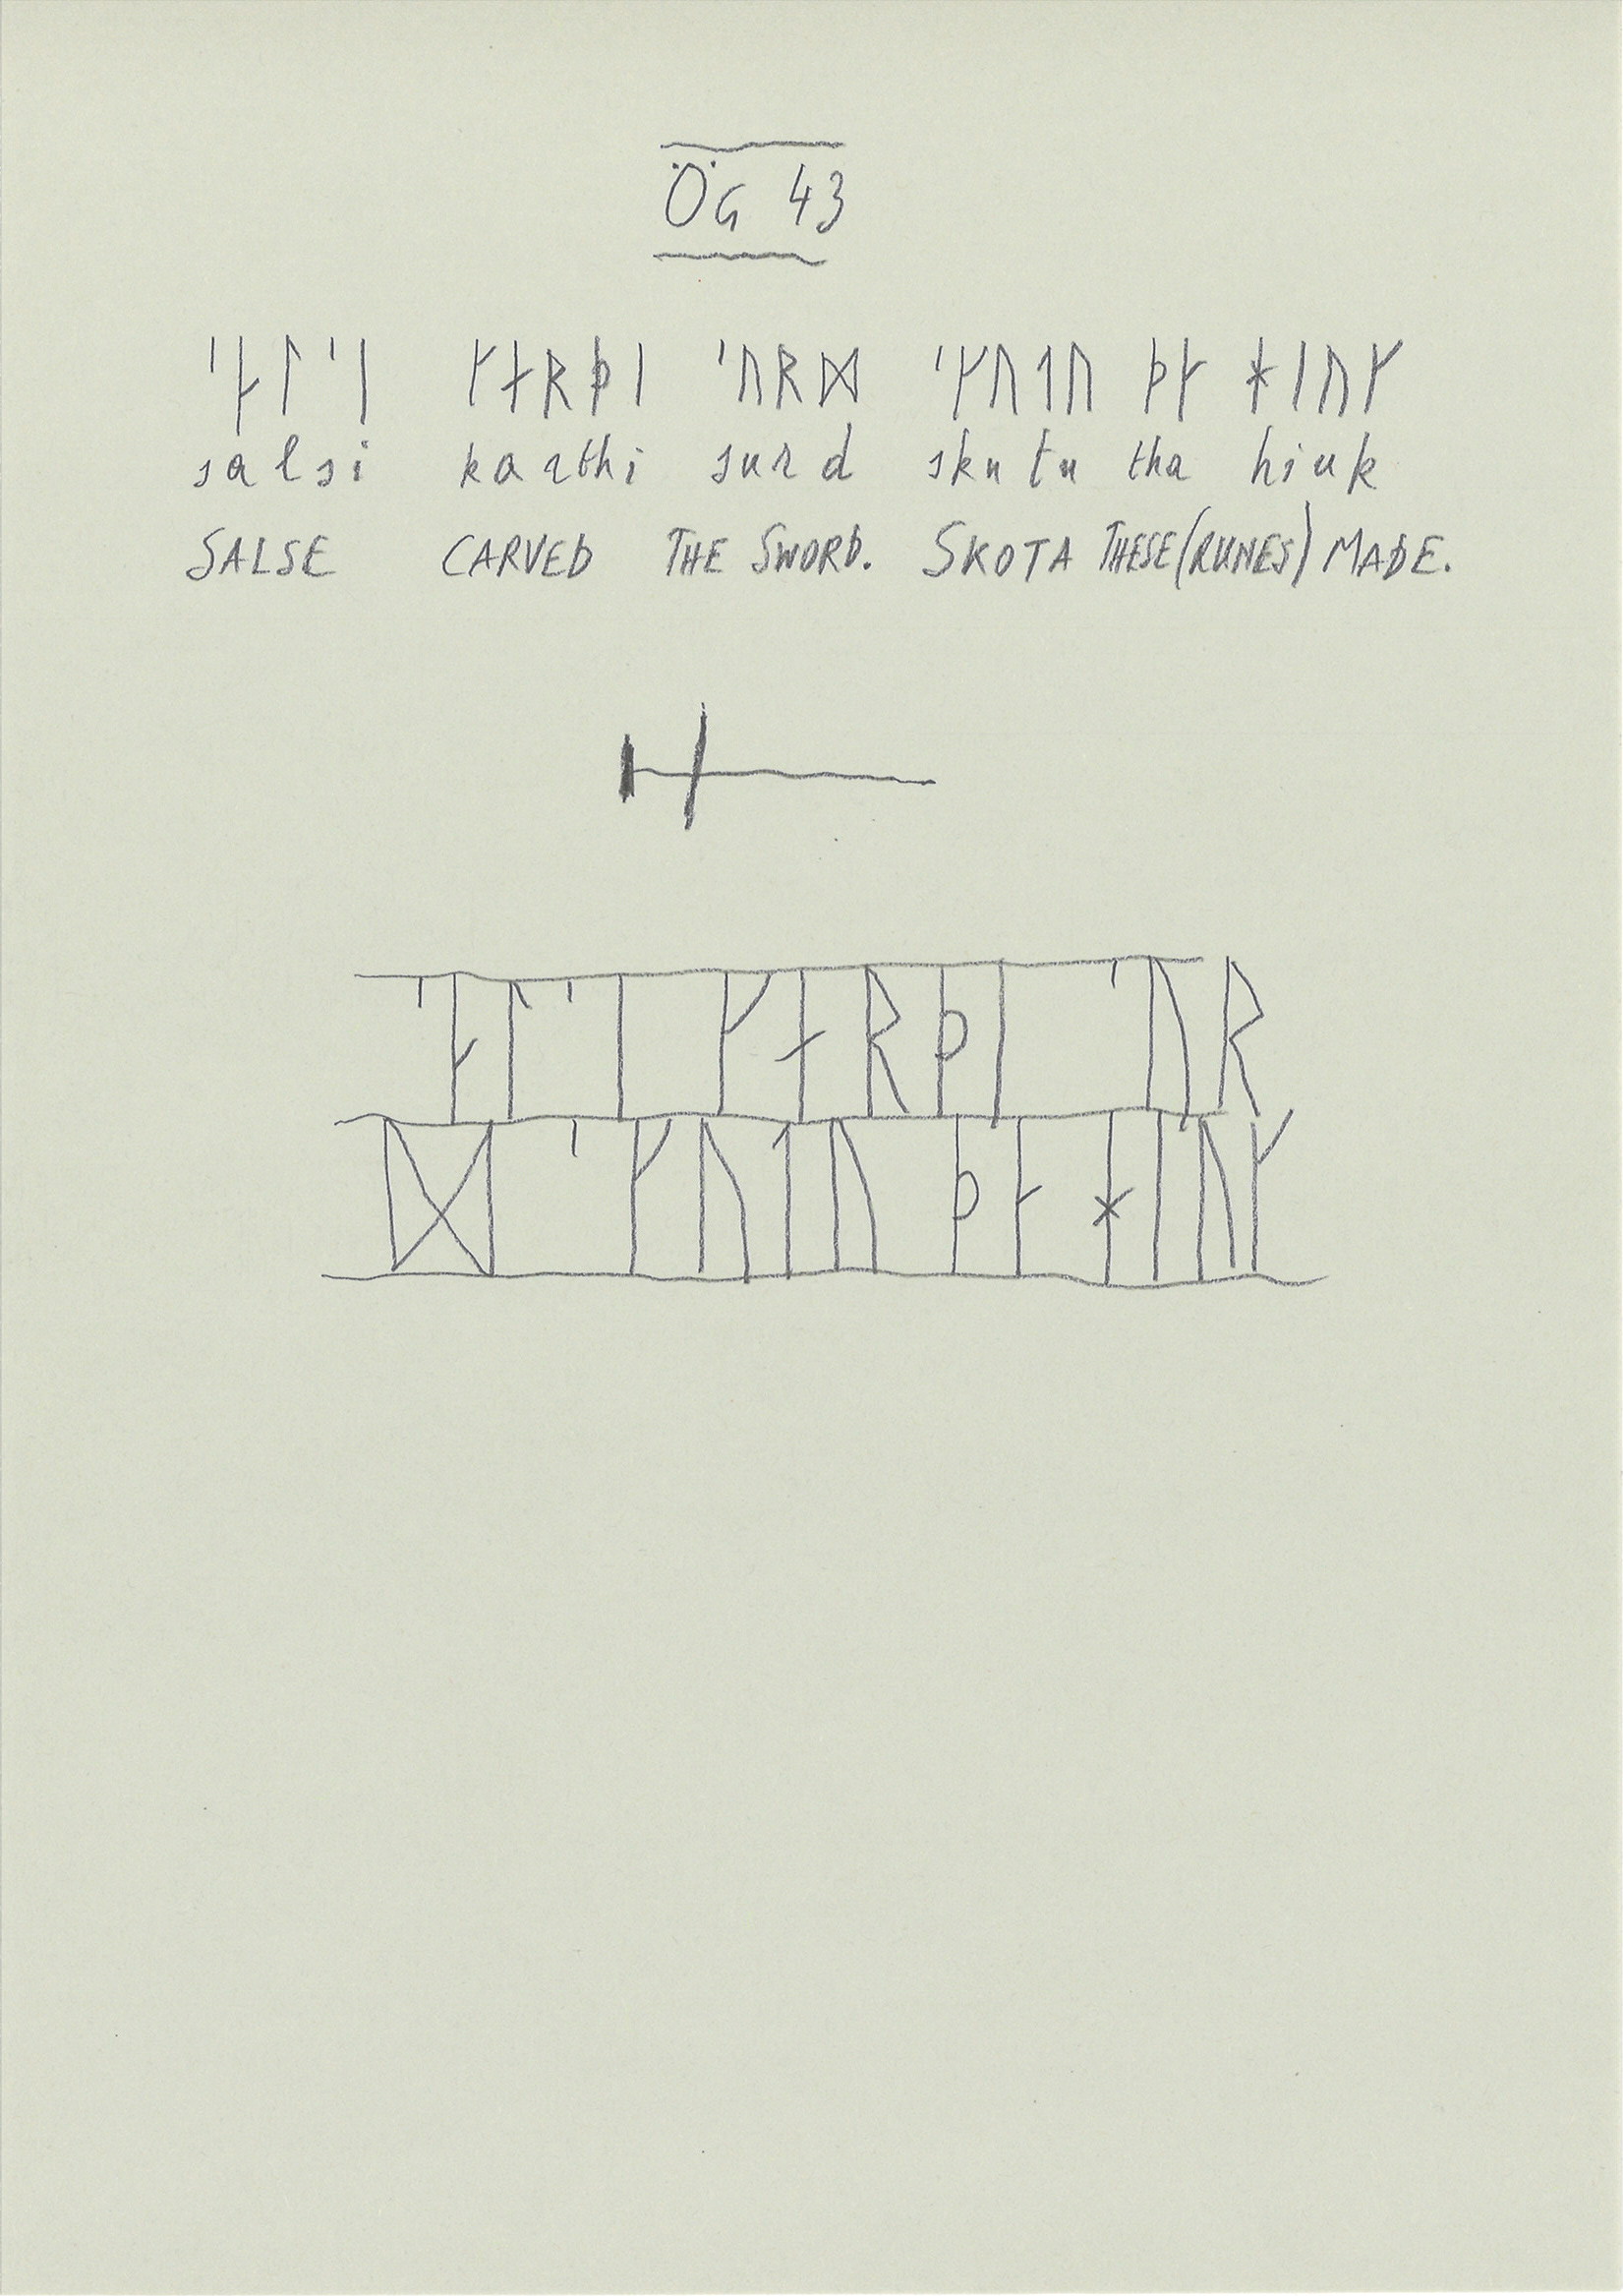 ÖG 43
ᛌᛆᛚᛌᛁ ᚴᛅᚱᚦᛁ ᛌᚢᚱᛞ ᛌᚴᚢᛐᚢ ᚦᛆ ᚼᛁᚢᚴ
salsi karthi surd skutu tha hiuk
SALSE CARVED THE SWORD. SKOTA THESE (RUNES) MADE.
ᛌᛆᛚᛌᛁ ᚴᛅᚱᚦᛁ ᛌᚢᚱ
ᛞ ᛌᚴᚢᛐᚢ ᚦᛆ ᚼᛁᚢᚴ